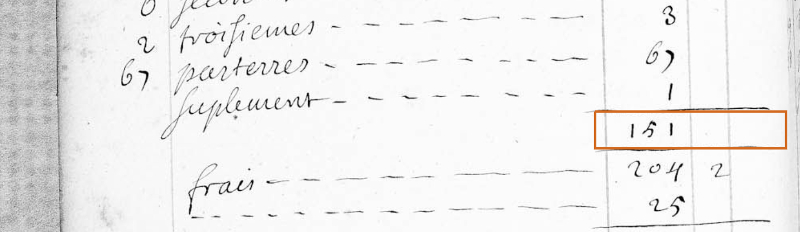 0
2 troisiemes 3
67 parterres 67
suplement 1
151
frais 204 2
25